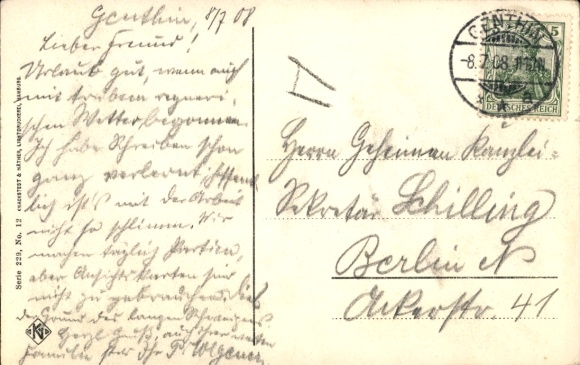 Genthin, 8/7 08
Lieber Freund!
Urlaub gut, wenn auch
mit trübem regneri-
schen Wetter begonnen.
Ich habe Schreiben schon
ganz verlernt, hoffent-
lich ist's mit der Arbeit
nicht so schlimm. Wir
machen täglich Partien,
aber Ansichtskarten sind
nicht zu gebrauchen. Dies
der Grund des langen Schweigens
Herzl. Gruß, auch Ihrer werten
Familie Ihr P. Wegener
Serie 229, No. 12
KNACKSTEDT & NÄTHER, LICHTDRUCKEREI, HAMBURG
GENTHIN
-8.7.08.
5
DEUTSCHES REICH
Herrn Geheimen Kanzlei-
Sekretär Schilling
Berlin N
Ackerstr. 41